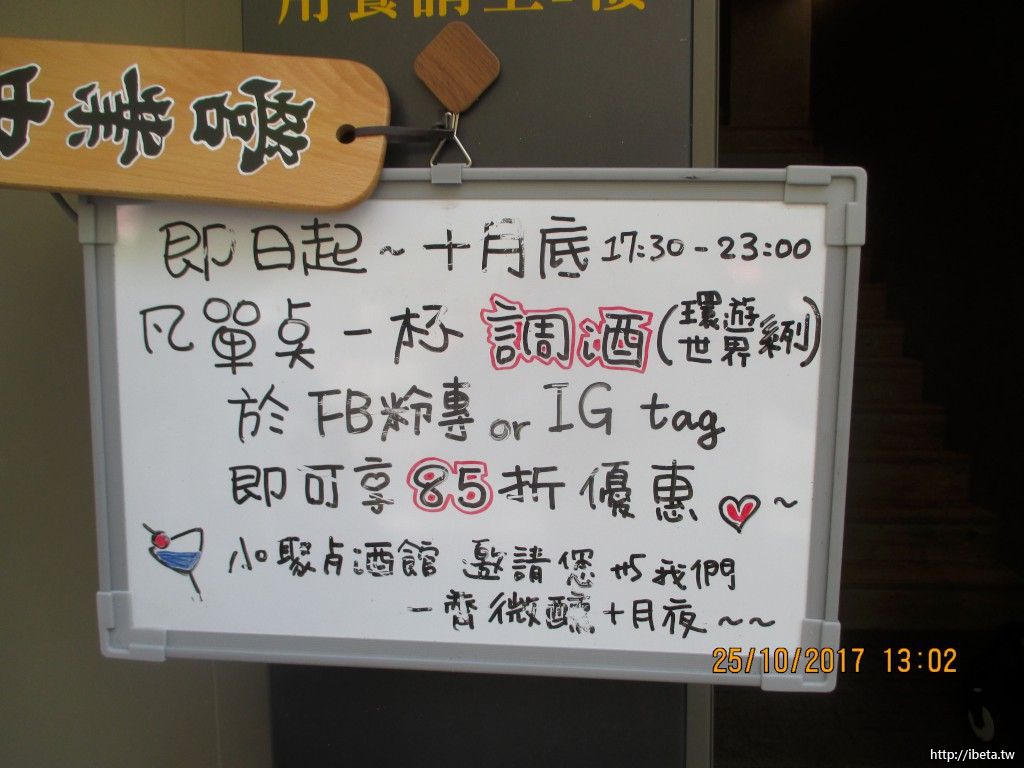 用餐請上2樓
營業中
即日起~十月底 17:30-23:00
凡單点一杯調酒(環遊世界系列)
於FB粉專 or IG tag
即可享85折優惠~
小聚点酒館 邀請您与我們
一齊微醺十月夜~~
25/10/2017 13:02
http://ibeta.tw